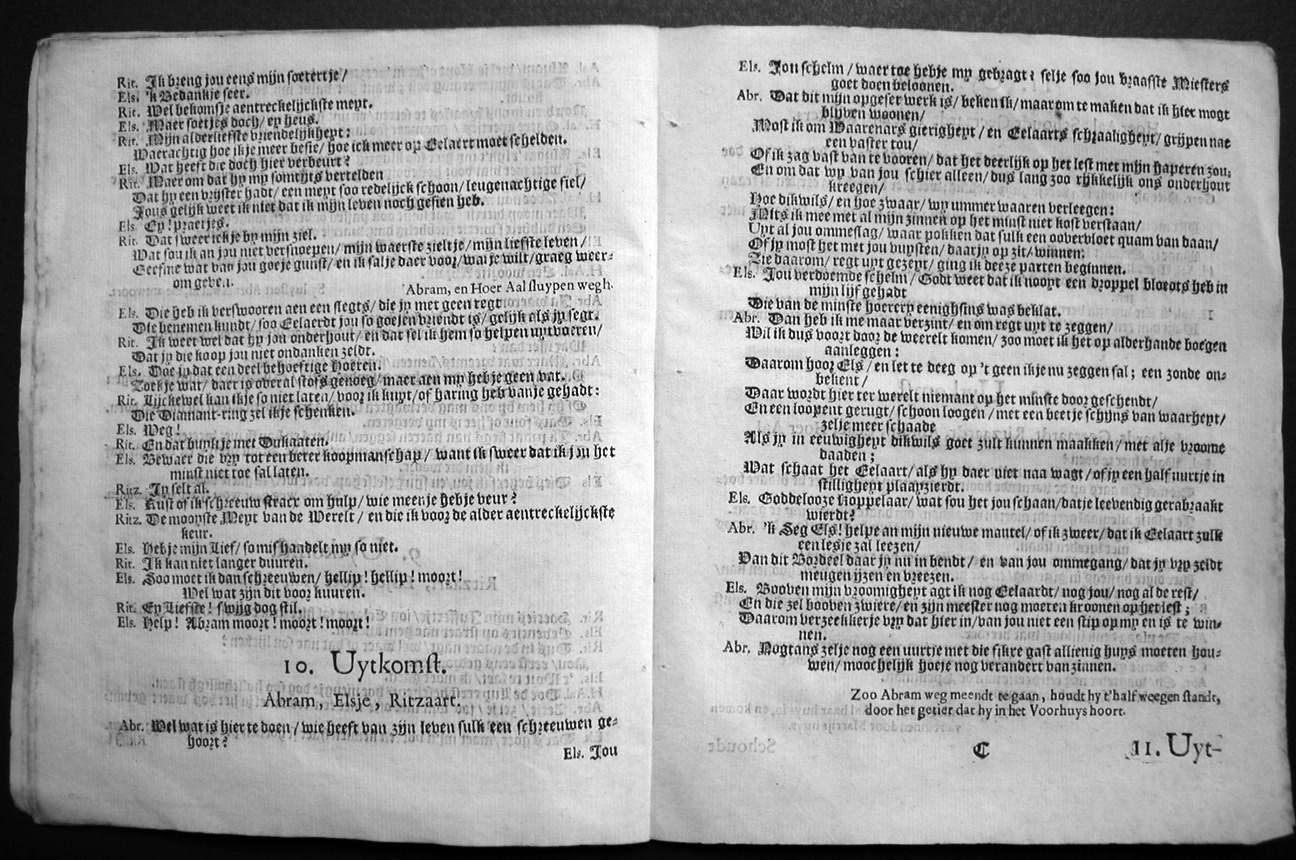 Rit. Ik breng jou eens mijn soetertje/
Els. 'k Bedankje seer.
Rit. Wel bekomsje aentreckelijckste meyt.
Els. Maer soetjes doch/ ey heus.
Rit. Mijn alderliefste vriendelijkheyt:
Waerachtig hoe ikje meer besie/ hoe ick meer op Eelaert moet schelden.
Els. Wat heeft die doch hier verbeurt?
Rit. Maer om dat hy my somtijts vertelden
Dat hy een vryster hadt/ een meyt soo redelijck schoon/ leugenachtige fiel/
Jous gelijk weet ik niet dat ik mijn leven noch gesien heb.
Els. Ey! praetjes.
Rit. Dat sweer ickje by mijn ziel.
Wat sou ik an jou niet versnoepen/ mijn waerste zieltje/ mijn liefste leven/
Geefme wat van jou goeje gunst/ en ik salje daer voor/ wat je wilt/ graeg weer-
om geven.
Abram, en Hoer Aal sluypen wegh.
Els. Die heb ik verswooren aen een slegts/ die jy met geen regt
Die benemen kundt/ soo Eelaerdt jou so goejen vriendt is/ gelijk als jy segt.
Rit. Ik weet wel dat hy jou onderhout/ en dat sel ik hem so helpen uytvoeren/
Dat jy die koop jou niet ondanken zeldt.
Els. Doe jy dat een deel behoeftige Hoeren.
Zoekje wat/ daer is overal stofs genoeg/ maer aen my heb je geen vat.
Rit. Lijckewel kan ikje so niet laten/ voor ik kuyt/ of haring heb vanje gehadt:
Die Diamant-ring zel ikje schenken.
Els. Weg!
Rit. En dat buyltje met Dukaaten.
Els. Bewaer die vry tot een beter koopmanschap/ want ik sweer dat ik jou het
minst niet toe sal laten.
Ritz. Jy selt al.
Els. Rust of ik schreeuw stracx om hulp/ wie meenje hebje veur?
Ritz. De mooyste Meyt van de Werelt/ en die ik voor de alder aentreckelijckste
keur.
Els. Hebje mijn Lief/ so mishandelt my so niet.
Rit. Ik kan niet langer duuren.
Els. Soo moet ik dan schreeuwen/ hellip! hellip! moort!
Wel wat zijn dit voor kuuren.
Rit. Ey Liefste! swijg dog stil.
Els. Help! Abram moort! moort! moort!
10. Uytkomst.
Abram, Elsje, Ritzaart.
Abr. Wel wat is hier te doen/ wie heeft van zijn leven sulk een schreeuwen ge-
hoort?
Els. Jou
Els. Jou schelm/ waer toe hebje my gebragt? selje soo jou braafste Miesters
goet doen beloonen.
Abr. Dat dit mijn opgeset werk is/ beken ik/ maar om te maken dat ik hier mogt
blijven woonen/
Most ik om Waarenars gierigheyt/ en Eelaarts schraaligheyt/ grijpen nae
een vaster tou/
Of ik zag vast van te vooren/ dat het deerlijk op het lest met mijn haperen zou;
En om dat wy van jou schier alleen/ dus lang zoo rijkkelijk ons onderhout
kreegen/
Hoe dikwils/ en hoe zwaar/ wy ummer waaren verleegen:
Mits ik mee met al mijn zinnen op het minst niet kost verstaan/
Uyt al jou ommeslag/ waar pokken dat sulk een oovervloet quam van daan/
Of jy most het met jou vuysten/ daar jy op zit/ winnen;
Zie daarom/ regt uyt gezeyt/ ging ik deeze parten beginnen.
Els. Jou verdoemde schelm/ Godt weet dat ik nooyt een droppel bloets heb in
mijn lijf gehadt
Die van de minste hoerery eenighsins was beklat.
Abr. Dan heb ik me maar verzint/ en om regt uyt te zeggen/
Wil ik dus voort door de weerelt komen/ zoo moet ik het op alderhande boegen
aanleggen:
Daarom hoor Els/ en let te deeg op 't geen ikje nu zeggen sal; een zonde on-
bekent/
Daar wordt hier ter werelt niemant op het minste door geschendt/
En een loopent gerugt/ schoon loogen/ met een beetje schijns van waarheyt/
zelje meer schaade
Als jy in eeuwigheyt dikwils goet zult kunnen maakken/ met alje vroome
daaden;
Wat schaat het Eelaart/ als hy daer niet naa wagt/ of jy een half uurtje in
stilligheyt plaayzierdt.
Els. Goddelooze Koppelaar/ wat sou het jou schaan/ datje leevendig gerabraakt
wierdt?
Abr. 'k Seg Els! helpe an mijn nieuwe mantel/ of ik zweer/ dat ik Eelaart zulk
een lesje zal leezen/
Van dit Bordeel daar jy nu in bendt/ en van jou ommegang/ dat jy vry zeldt
meugen ijzen en vreezen.
Els. Booven mijn vroomigheyt agt ik nog Eelaardt/ nog jou/ nog al de rest/
En die zel booven zwiere/ en zijn meester nog moeten kroonen op het lest;
Daarom verzeekker je vry dat hier in/ van jou niet een stip op my en is te win-
nen.
Abr. Nogtans zelje nog een uurtje met die sikre gast allienig huys moeten hou-
wen/ moochelijk hoeje nog verandert van zinnen.
Zoo Abram weg meendt te gaan, houdt hy t'half weegen standt,
door het getier dat hy in het Voorhuys hoort.
C
11. Uyt-